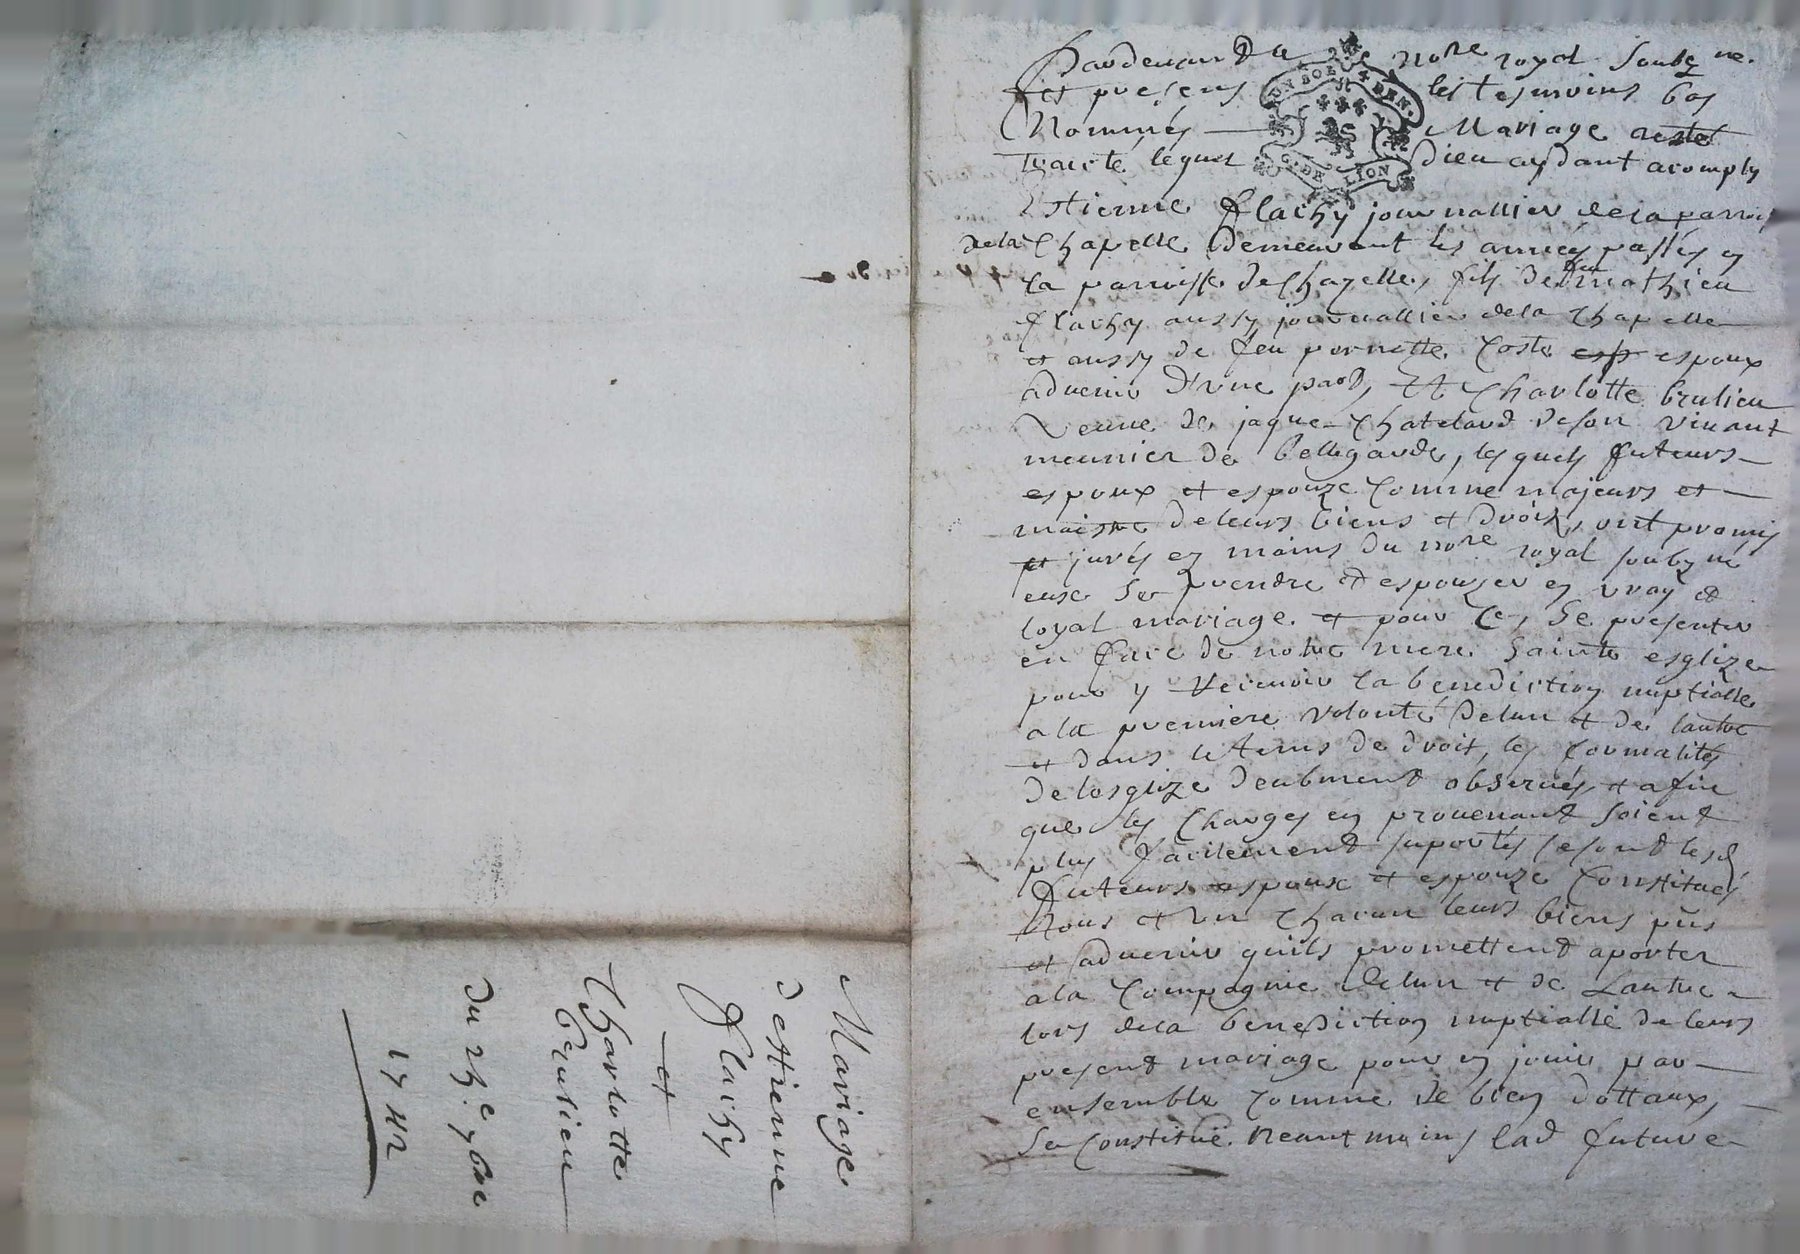 Mariage
d'estienne
Flachy
et
Charlotte
brulieu
du 25.e 7bre
1742
Pardevant le nore royal soubzne.
et presens les tesmoins bas
Nommés Mariage a esté
traicté lequel dieu aydant acomply
UN SOL 4 DEN.
G. DE LION
Estienne flachy journallier de la parroisse
de la Chapelle demeurant les années passés en
la parroisse de Chazelle, fils de feu mathieu
flachy aussy journallier de la Chapelle
et aussy de feu pernette Coste esp espoux
advenir d'une part, Et Charlotte brulieu
Veuve de jaque Chatelard de son vivant
meunier de bellegarde, lesquels futeurs
espoux et espouze comme majeurs et
maistre de leurs biens et droix, ont promis
et jurés en mains du nore royal soubzne
euse se prendre et espouzer en vray et
loyal mariage et pour Ce, se presenter
en face de notre mere sainte esglize
pour y recevoir la benediction nuptialle
a la premiere volonté de lun et de lautre
et dans le tems de droit, les formalités
de lesglize deubment observés et afin
que les Charges en provenant soient
plus facilement suportés se sont lesd
futeurs espoux et espouze Constitués
tous et un chacun leurs biens pns
et advenir quils promettent aporter
a la Compagnie de lun et de Lautre
lors de la benediction nuptialle de leurs
present mariage pour en jouir par
ensemble comme de bien dottaux,
Se constitue neantmoins lad future